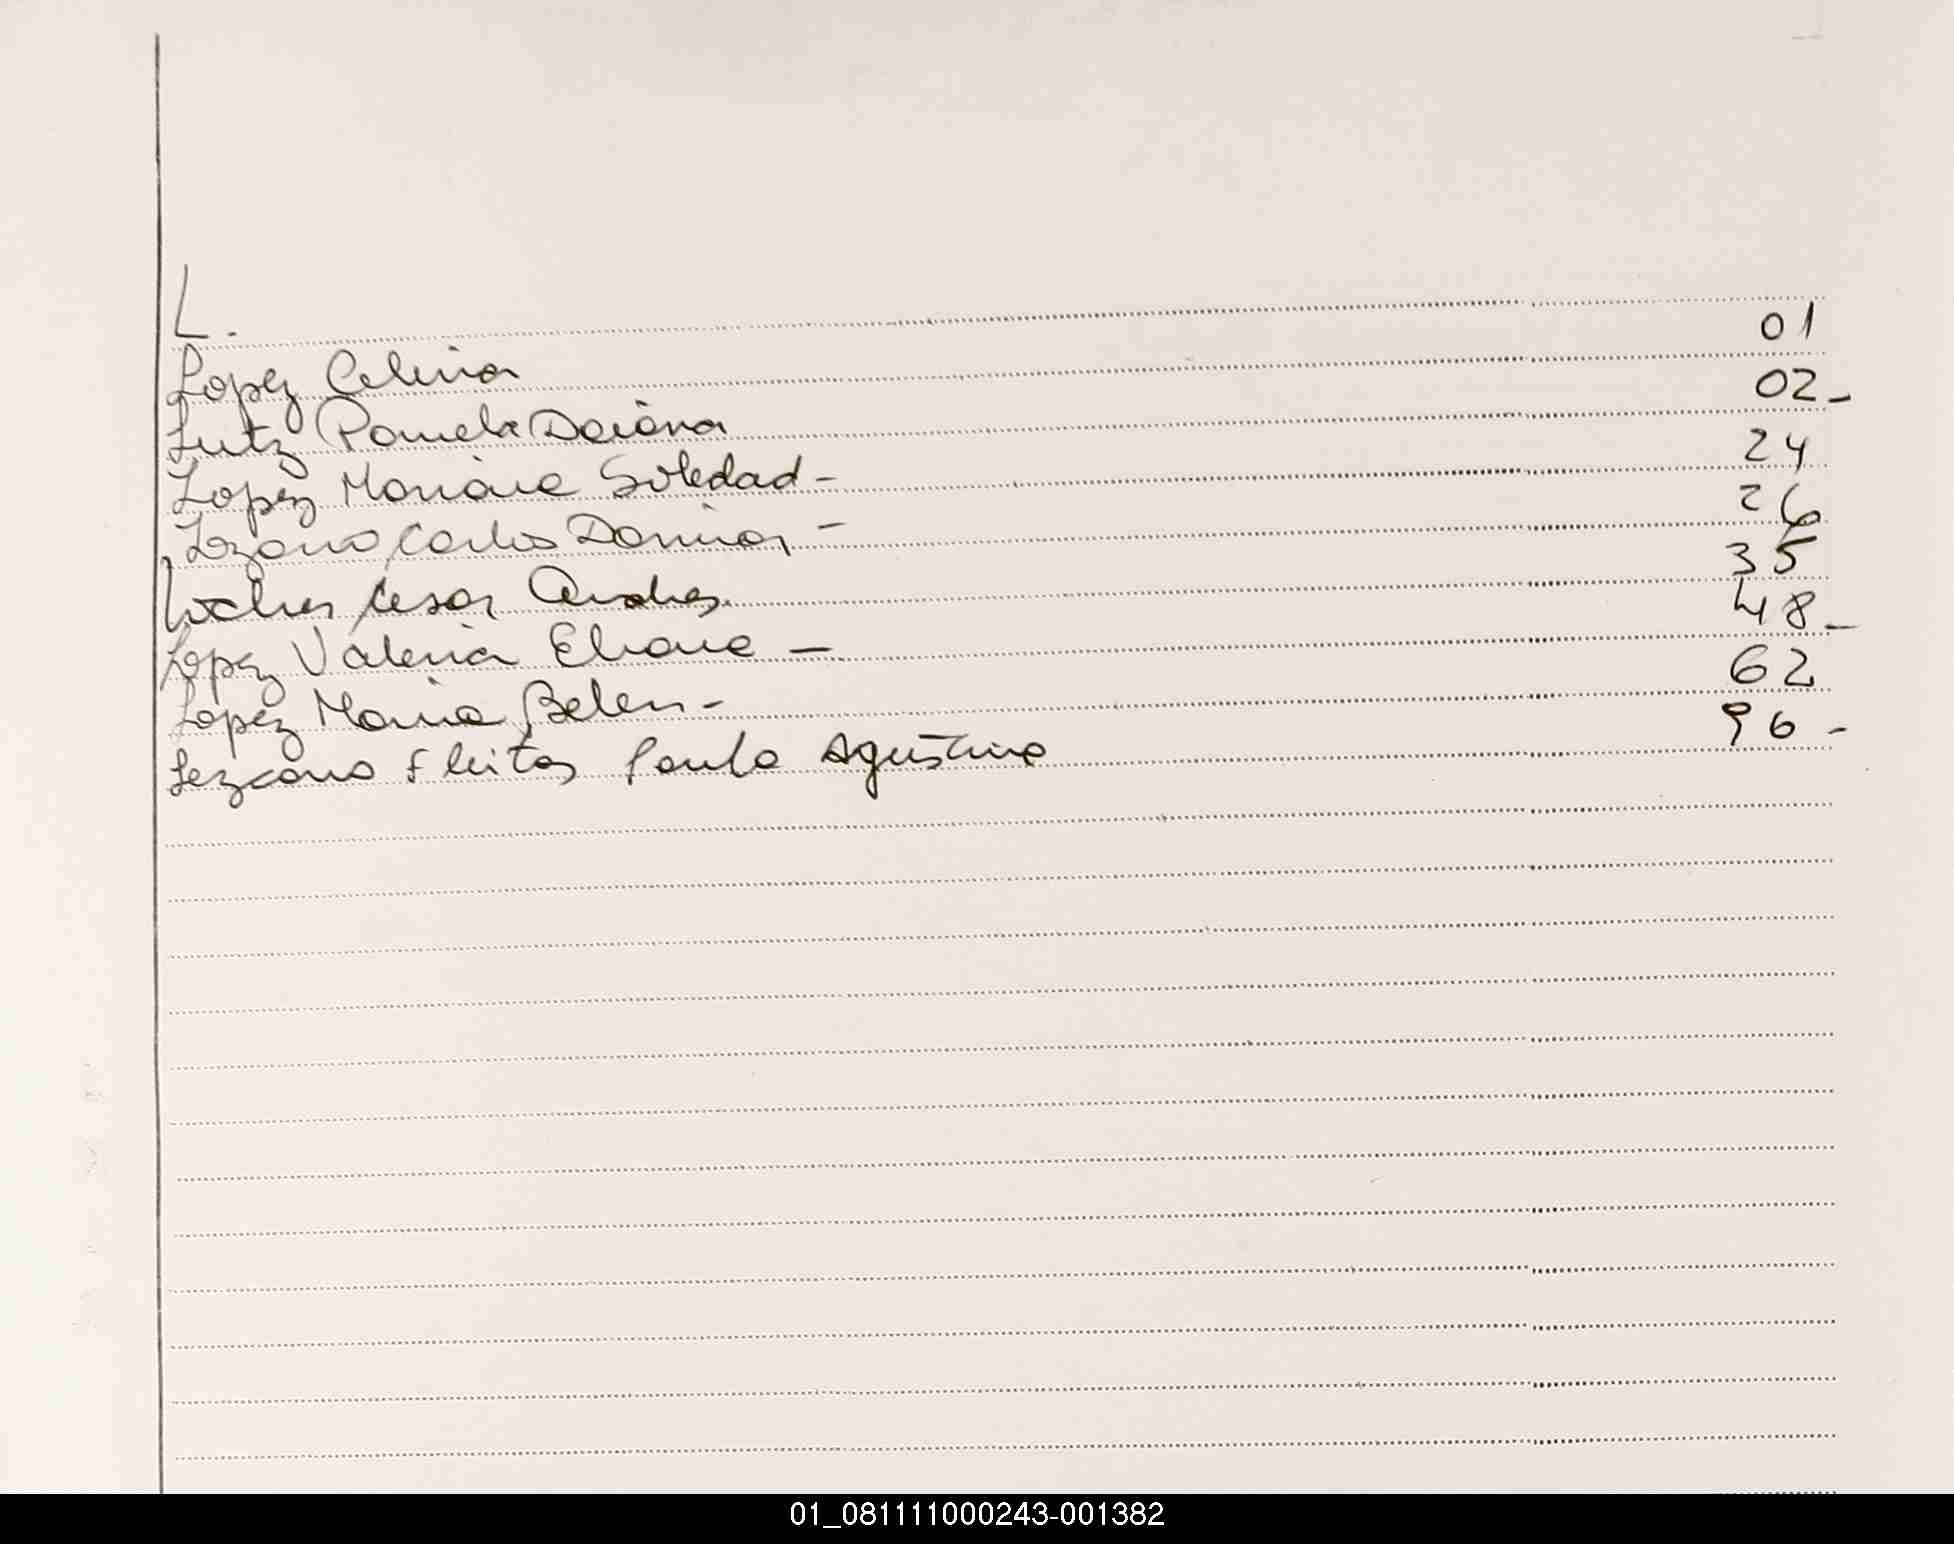 L.
Lopez Celina 01
Lutz Pamela Daiana 02-
Lopez Mariana Soledad - 24
Lozano Carlos Damian - 26
Cesar Andres. 35
Lopez Valeria Eliana - 48-
Lopez Maria Belen - 62
Lezcano Fleitas Paula Agustina 96-
01_081111000243-001382